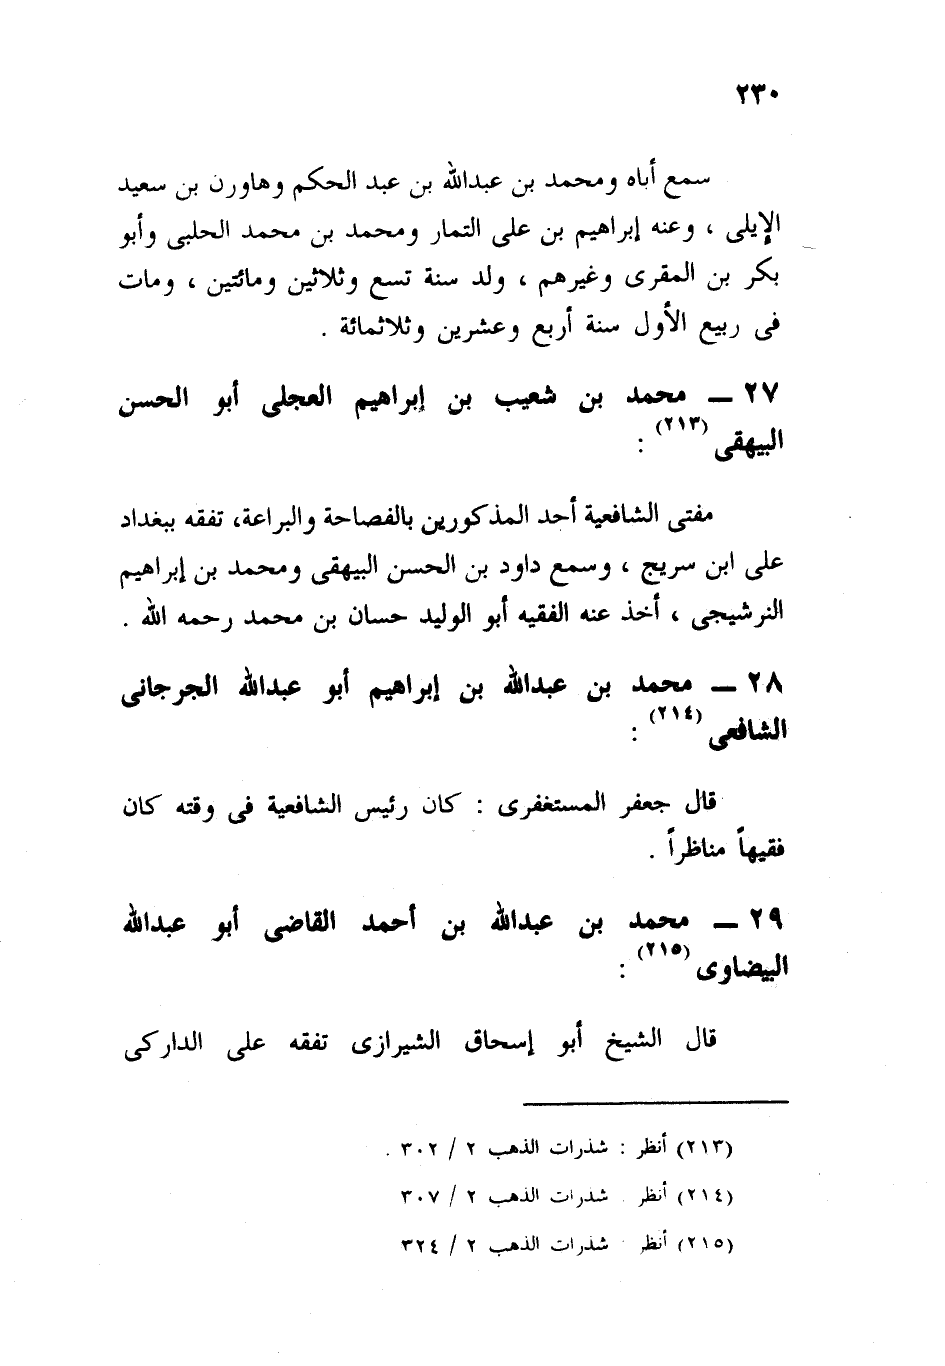 ٢٣٠
سمع أباه ومحمد بن عبدالله بن عبد الحكم وهاورن بن سعيد
الإيلى ، وعنه إبراهيم بن على التمار ومحمد بن محمد الحلبى وأبو
بكر بن المقرى وغيرهم ، ولد سنة تسع وثلاثين ومائتين ، ومات
فى ربيع الأول سنة أربع وعشرين وثلاثمائة .
٢٧ ــ محمد بن شعيب بن إبراهيم العجلى أبو الحسن
البيهقى (٢١٣) :
مفتى الشافعية أحد المذكورين بالفصاحة والبراعة، تفقه ببغداد
على ابن سريج ، وسمع داود بن الحسن البيهقى ومحمد بن إبراهيم
النرشيجى ، أخذ عنه الفقيه أبو الوليد حسان بن محمد رحمه الله .
٢٨ ــ محمد بن عبدالله بن إبراهيم أبو عبدالله الجرجانى
الشافعى (٢١٤) :
قال جعفر المستغفرى : كان رئيس الشافعية فى وقته كان
فقيهاً مناظراً .
٢٩ ــ محمد بن عبدالله بن أحمد القاضى أبو عبدالله
البيضاوى (٢١٥) :
قال الشيخ أبو إسحاق الشيرازى تفقه على الداركى
(٢١٣) أنظر : شذرات الذهب ٢ / ٣٠٢ .
(٢١٤) أنظر . شذرات الذهب ٢ / ٣٠٧
(٢١٥) أنظر . شذرات الذهب ٢ / ٣٢٤